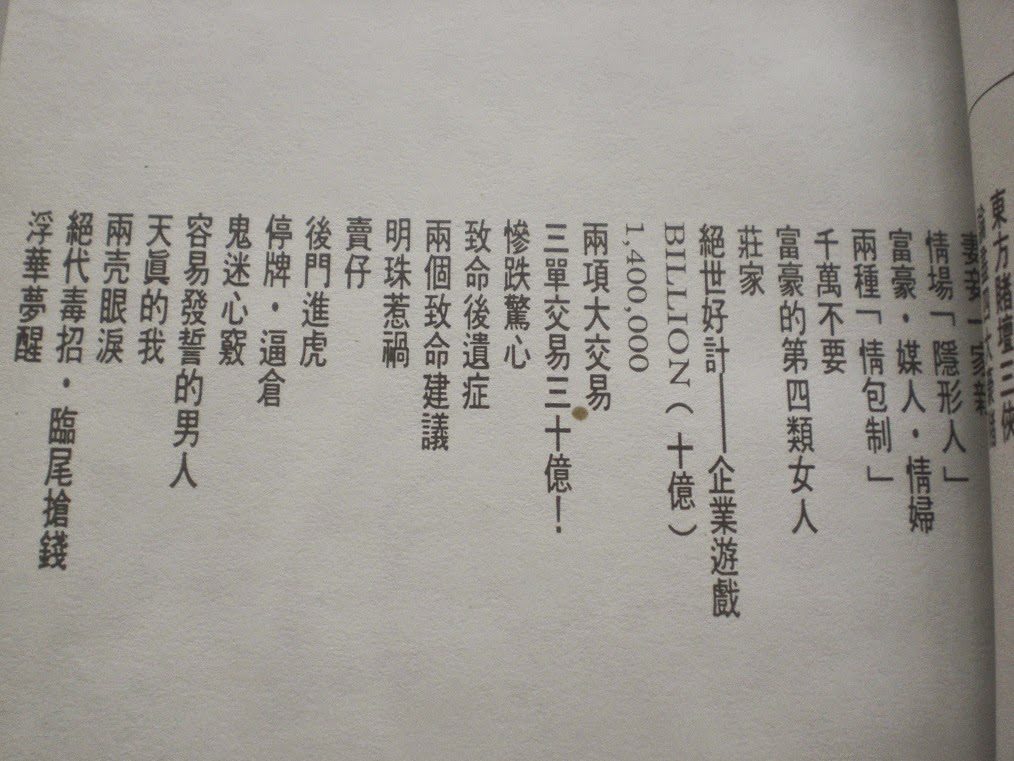 東方賭壇三俠
妻妾一家親
情場「隱形人」
富豪・媒人・情婦
兩種「情包制」
千萬不要
富豪的第四類女人
莊家
絕世好計——企業遊戲
BILLION（十億）
1,400,000
兩項大交易
三單交易三十億！
慘跌驚心
致命後遺症
兩個致命建議
明珠惹禍
賣仔
後門進虎
停牌・逼倉
鬼迷心竅
容易發誓的男人
天眞的我
兩壳眼淚
絕代毒招・臨尾搶錢
浮華夢醒